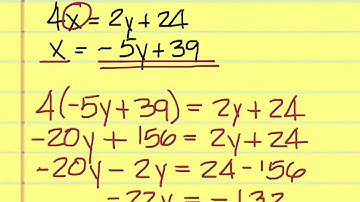 4x = 2y + 24
x = -5y + 39
4(-5y + 39) = 2y + 24
-20y + 156 = 2y + 24
-20y - 2y = 24 - 156
-22y = -132